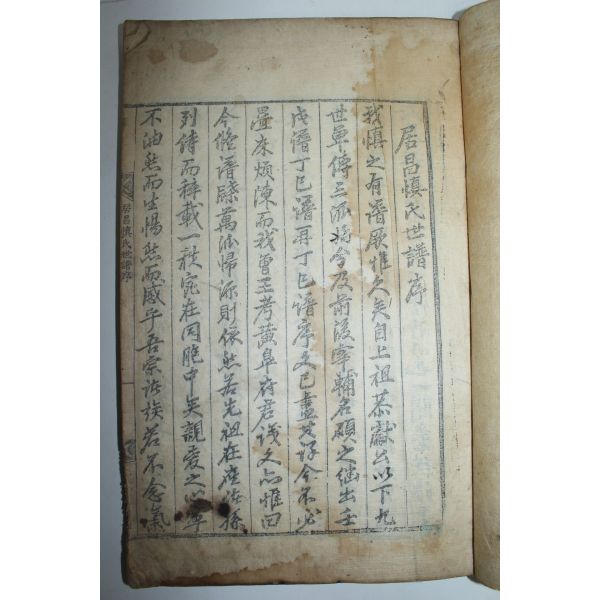 居昌愼氏世譜序
我愼之有譜厥惟久矣自上祖恭獻公以下九
世單傳三派始分及前後宰輔名碩之継出壬
戌譜丁巳譜再丁巳譜序文已盡其詳今不必
疊床煩陳而我曾王考黃阜府君識文亦惟曰
今修譜牒萬派歸源則依然若先祖在座諸孫
列侍而稡載一袟宛在同胞中矣親愛之心孰
不油然而生惕然而感乎吾宗諸族若不念氣
居昌愼氏世譜序